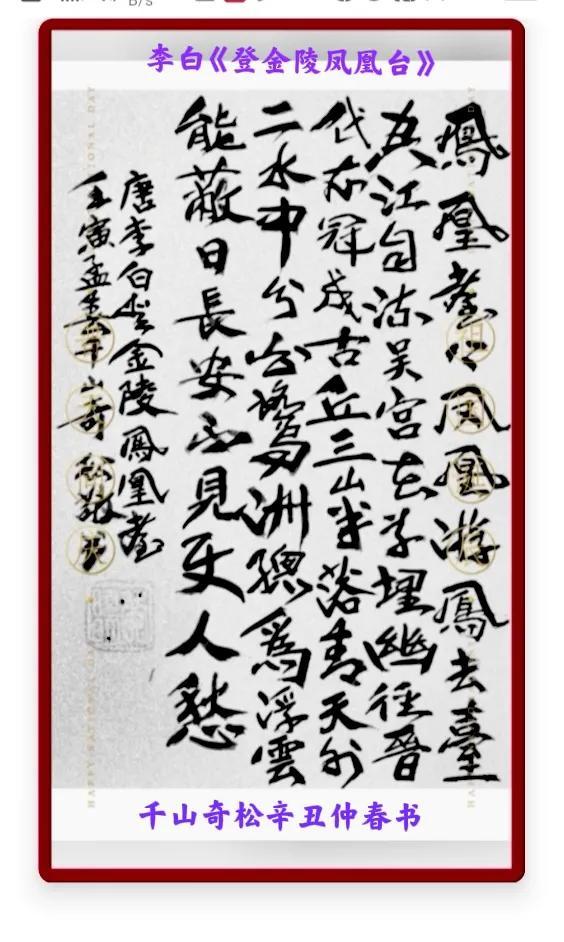 李白《登金陵凤凰台》
鳳凰臺上凤凰游鳳去臺
空江自流吴宫花草埋幽径晋
代衣冠成古丘三山半落青天外
二水中分白鷺洲總為浮雲
能蔽日長安不見使人愁
唐李白登金陵鳳凰臺
壬寅孟春千山奇松敬书
HAPPY NATIONAL DAY
千山奇松辛丑仲春书